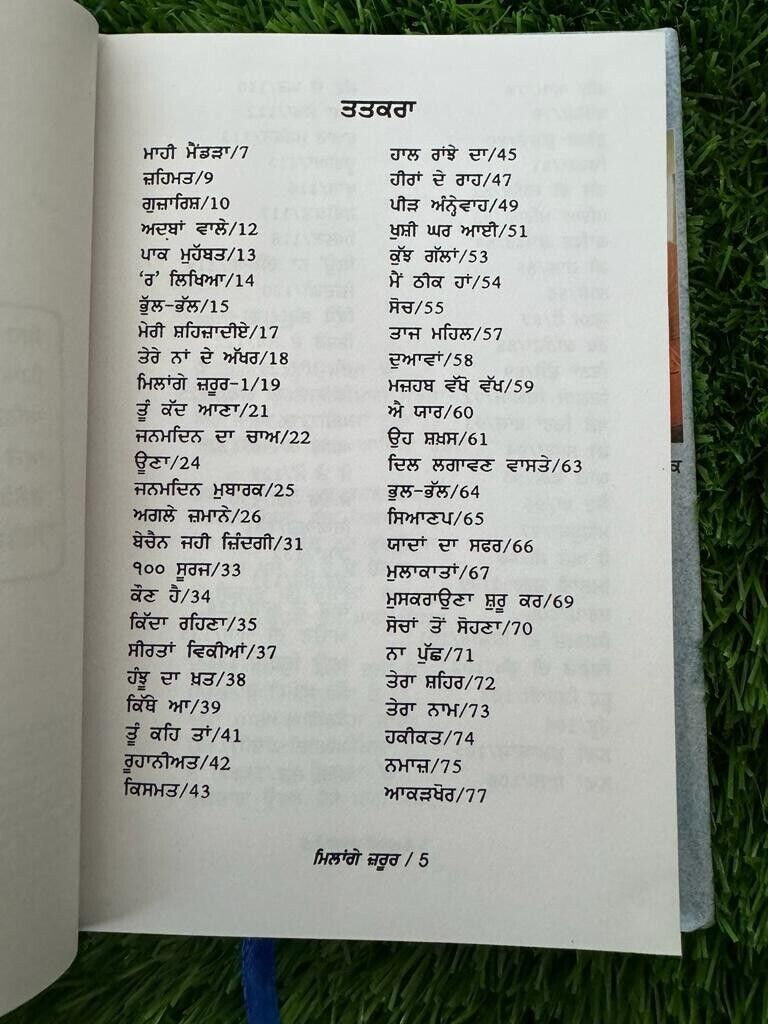 ਤਤਕਰਾ
ਮਾਹੀ ਮੈਂਡੜਾ/7
ਜ਼ਹਿਮਤ/9
ਗੁਜ਼ਾਰਿਸ਼/10
ਅਦਬਾਂ ਵਾਲੇ/12
ਪਾਕ ਮੁਹੱਬਤ/13
‘ਰ’ ਲਿਖਿਆ/14
ਭੁੱਲ-ਭੁੱਲ/15
ਮੇਰੀ ਸ਼ਹਿਜ਼ਾਦੀਏ/17
ਤੇਰੇ ਨਾਂ ਦੇ ਅੱਖਰ/18
ਮਿਲਾਂਗੇ ਜ਼ਰੂਰ-1/19
ਤੂੰ ਕੱਦ ਆਣਾ/21
ਜਨਮਦਿਨ ਦਾ ਚਾਅ/22
ਊਣਾ/24
ਜਨਮਦਿਨ ਮੁਬਾਰਕ/25
ਅਗਲੇ ਜ਼ਮਾਨੇ/26
ਬੇਚੈਨ ਜਹੀ ਜ਼ਿੰਦਗੀ/31
੧੦੦ ਸੂਰਜ/33
ਕੌਣ ਹੈ/34
ਕਿੱਦਾ ਰਹਿਣਾ/35
ਸੀਰਤਾਂ ਵਿਕੀਆਂ/37
ਹੰਝੂ ਦਾ ਖ਼ਤ/38
ਕਿੱਥੇ ਆ/39
ਤੂੰ ਕਹਿ ਤਾਂ/41
ਰੂਹਾਨੀਅਤ/42
ਕਿਸਮਤ/43
ਹਾਲ ਰਾਂਝੇ ਦਾ/45
ਹੀਰਾਂ ਦੇ ਰਾਹ/47
ਪੀੜ ਅੰਨ੍ਹੇਵਾਹ/49
ਖੁਸ਼ੀ ਘਰ ਆਈ/51
ਕੁੱਝ ਗੱਲਾਂ/53
ਮੈਂ ਠੀਕ ਹਾਂ/54
ਸੋਚ/55
ਤਾਜ ਮਹਿਲ/57
ਦੁਆਵਾਂ/58
ਮਜ਼ਹਬ ਵੱਖੋ ਵੱਖ/59
ਐ ਯਾਰ/60
ਉਹ ਸ਼ਖ਼ਸ/61
ਦਿਲ ਲਗਾਵਣ ਵਾਸਤੇ/63
ਭੁਲ-ਭੱਲ/64
ਸਿਆਣਪ/65
ਯਾਦਾਂ ਦਾ ਸਫਰ/66
ਮੁਲਾਕਾਤਾਂ/67
ਮੁਸਕਰਾਉਣਾ ਸ਼ੁਰੂ ਕਰ/69
ਸੋਚਾਂ ਤੋਂ ਸੋਹਣਾ/70
ਨਾ ਪੁੱਛ/71
ਤੇਰਾ ਸ਼ਹਿਰ/72
ਤੇਰਾ ਨਾਮ/73
ਹਕੀਕਤ/74
ਨਮਾਜ਼/75
ਆਕੜਖੋਰ/77
ਮਿਲਾਂਗੇ ਜ਼ਰੂਰ / 5